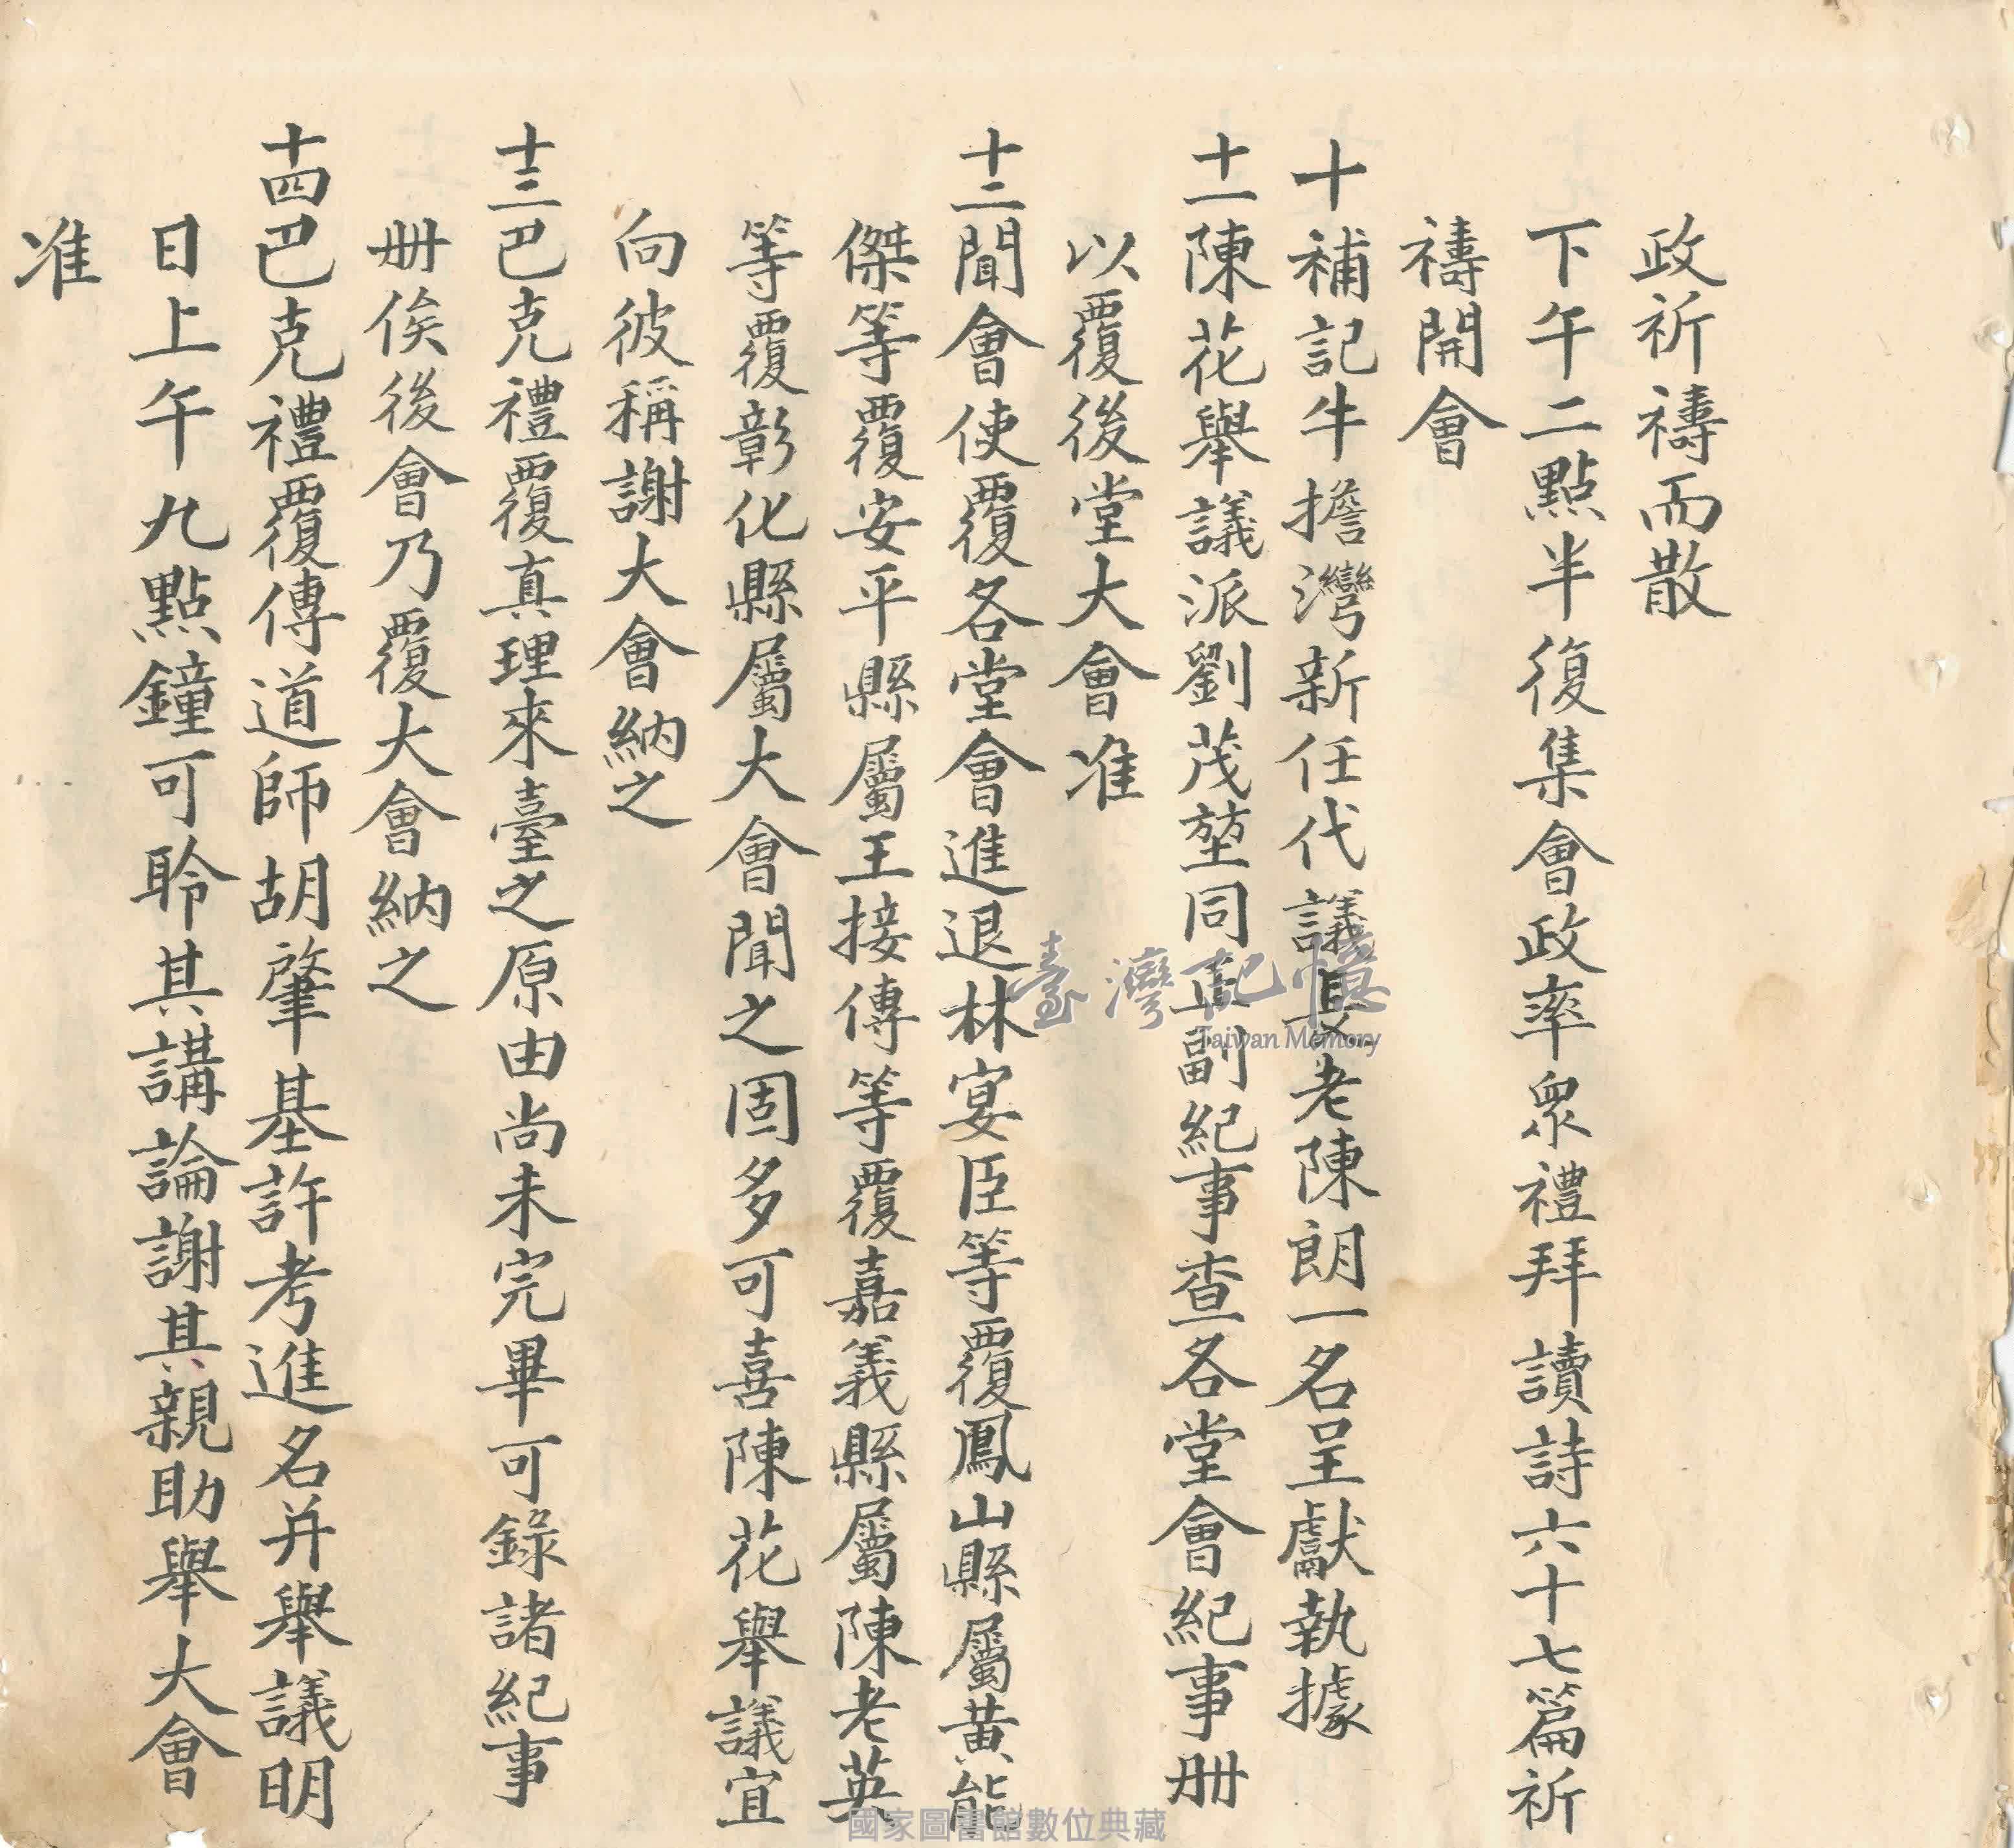 政祈禱而散
下午二點半復集會政率衆禮拜讀詩六十七篇祈
禱開會
十補記牛擔灣新任代議長老陳朗一名呈獻執據
十一陳花舉議派劉茂堃同正副紀事查各堂會紀事冊
以覆後堂大會准
十二聞會使覆各堂會進退林宴臣等覆鳳山縣屬黃能
傑等覆安平縣屬王接傳等覆嘉義縣屬陳老英
等覆彰化縣屬大會聞之固多可喜陳花舉議宜
向彼稱謝大會納之
十三巴克禮覆真理來臺之原由尚未完畢可錄諸紀事
冊俟後會乃覆大會納之
十四巴克禮覆傳道師胡肇基許考進名并舉議明
日上午九點鐘可聆其講論謝其親助舉大會
准
臺灣記憶
Taiwan Memory
國家圖書館數位典藏